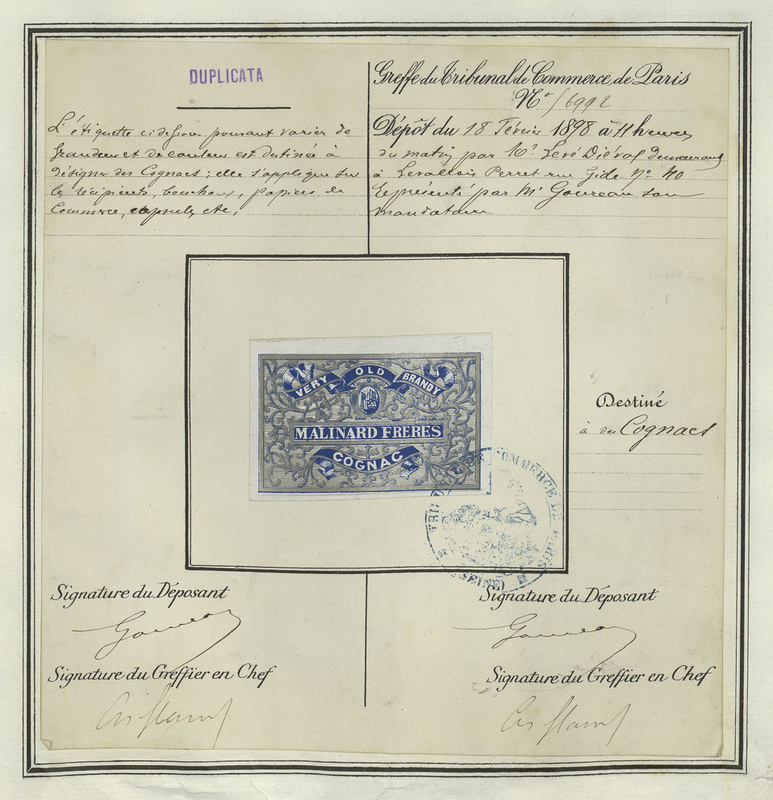 DUPLICATA
L'étiquette ci dessous pouvant varier de
grandeur et de couleur est destinée à
désigner des Cognacs ; elle s'applique sur
les récipients, bouchons, papiers de
Commerce, capsules etc.
Greffe du Tribunal de Commerce de Paris
N° 16992
Dépôt du 18 Février 1898 à 11 heures
du matin par Mr Levé Diéval demeurant
à Levallois Perret rue Gide No 40
représenté par Mr Goureau son
mandataire
VERY OLD BRANDY
MALINARD FRERES
COGNAC
Destiné
à des Cognacs
TRIBUNAL DE COMMERCE DE PARIS
(SEINE)
Signature du Déposant
Goureau
Signature du Greffier en Chef
Signature du Déposant
Goureau
Signature du Greffier en Chef